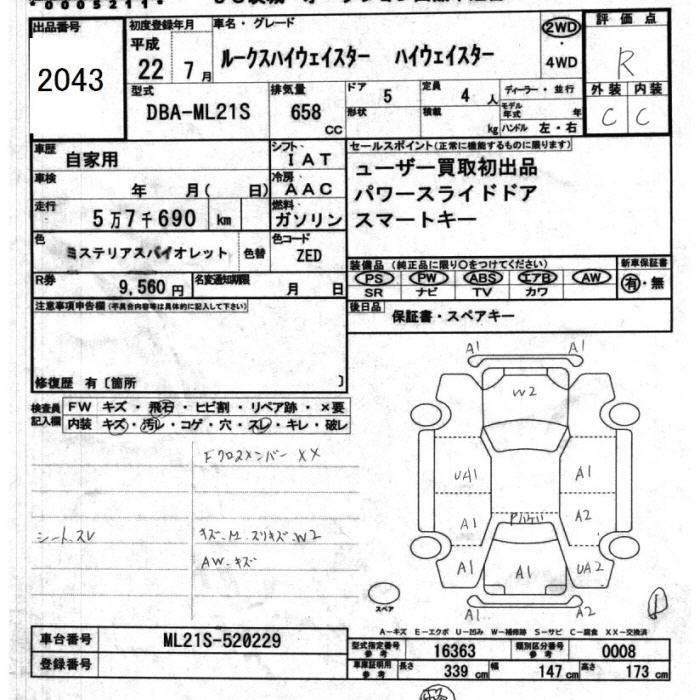 *0005211*
出品番号
2043
初度登録年月
平成
22年7月
車名・グレード
ルークスハイウェイスター ハイウェイスター
2WD
・
4WD
評価点
R
外装 内装
C C
型式
DBA-ML21S
排気量
658
CC
ドア
5
形状
定員
4人
積載
kg
ディーラー・並行
モデル年式 年
ハンドル 左・右
車歴
自家用
シフト
IAT
車検
年 月( 日)
冷房
AAC
走行
5万7千690 km
燃料
ガソリン
色
ミステリアスバイオレット
色替
色コード
ZED
R券
9,560円
名変通知期限
月 日
セールスポイント(正常に機能するものに限ります)
ユーザー買取初出品
パワースライドドア
スマートキー
装備品(純正品に限り〇をつけてください)
PS PW ABS エアB AW
SR ナビ TV カワ
新車保証書
有・無
後日品
保証書・スペアキー
注意事項申告欄(不具合内容等は具体的に記入して下さい)
修復歴 有〔箇所 〕
検査員記入欄
FW キズ・飛石・ヒビ割・リペア跡・×要
内装 キズ・汚レ・コゲ・穴・スレ・キレ・破レ
Fクロスメンバー XX
シート.スレ
キズ.M.スリキズ.W2
AW.キズ
A1 A1
W2
UA1 A1
A1 A2
A1 A1 UA2
A1 A2
スペア
A-キズ E-エクボ U-凹み W-補修跡 S-サビ C-腐食 XX-交換済
車台番号
ML21S-520229
登録番号
型式指定番号 参考
16363
類別区分番号 参考
0008
車庫証明用 参考
長さ 339 cm 幅 147 cm 高さ 173 cm